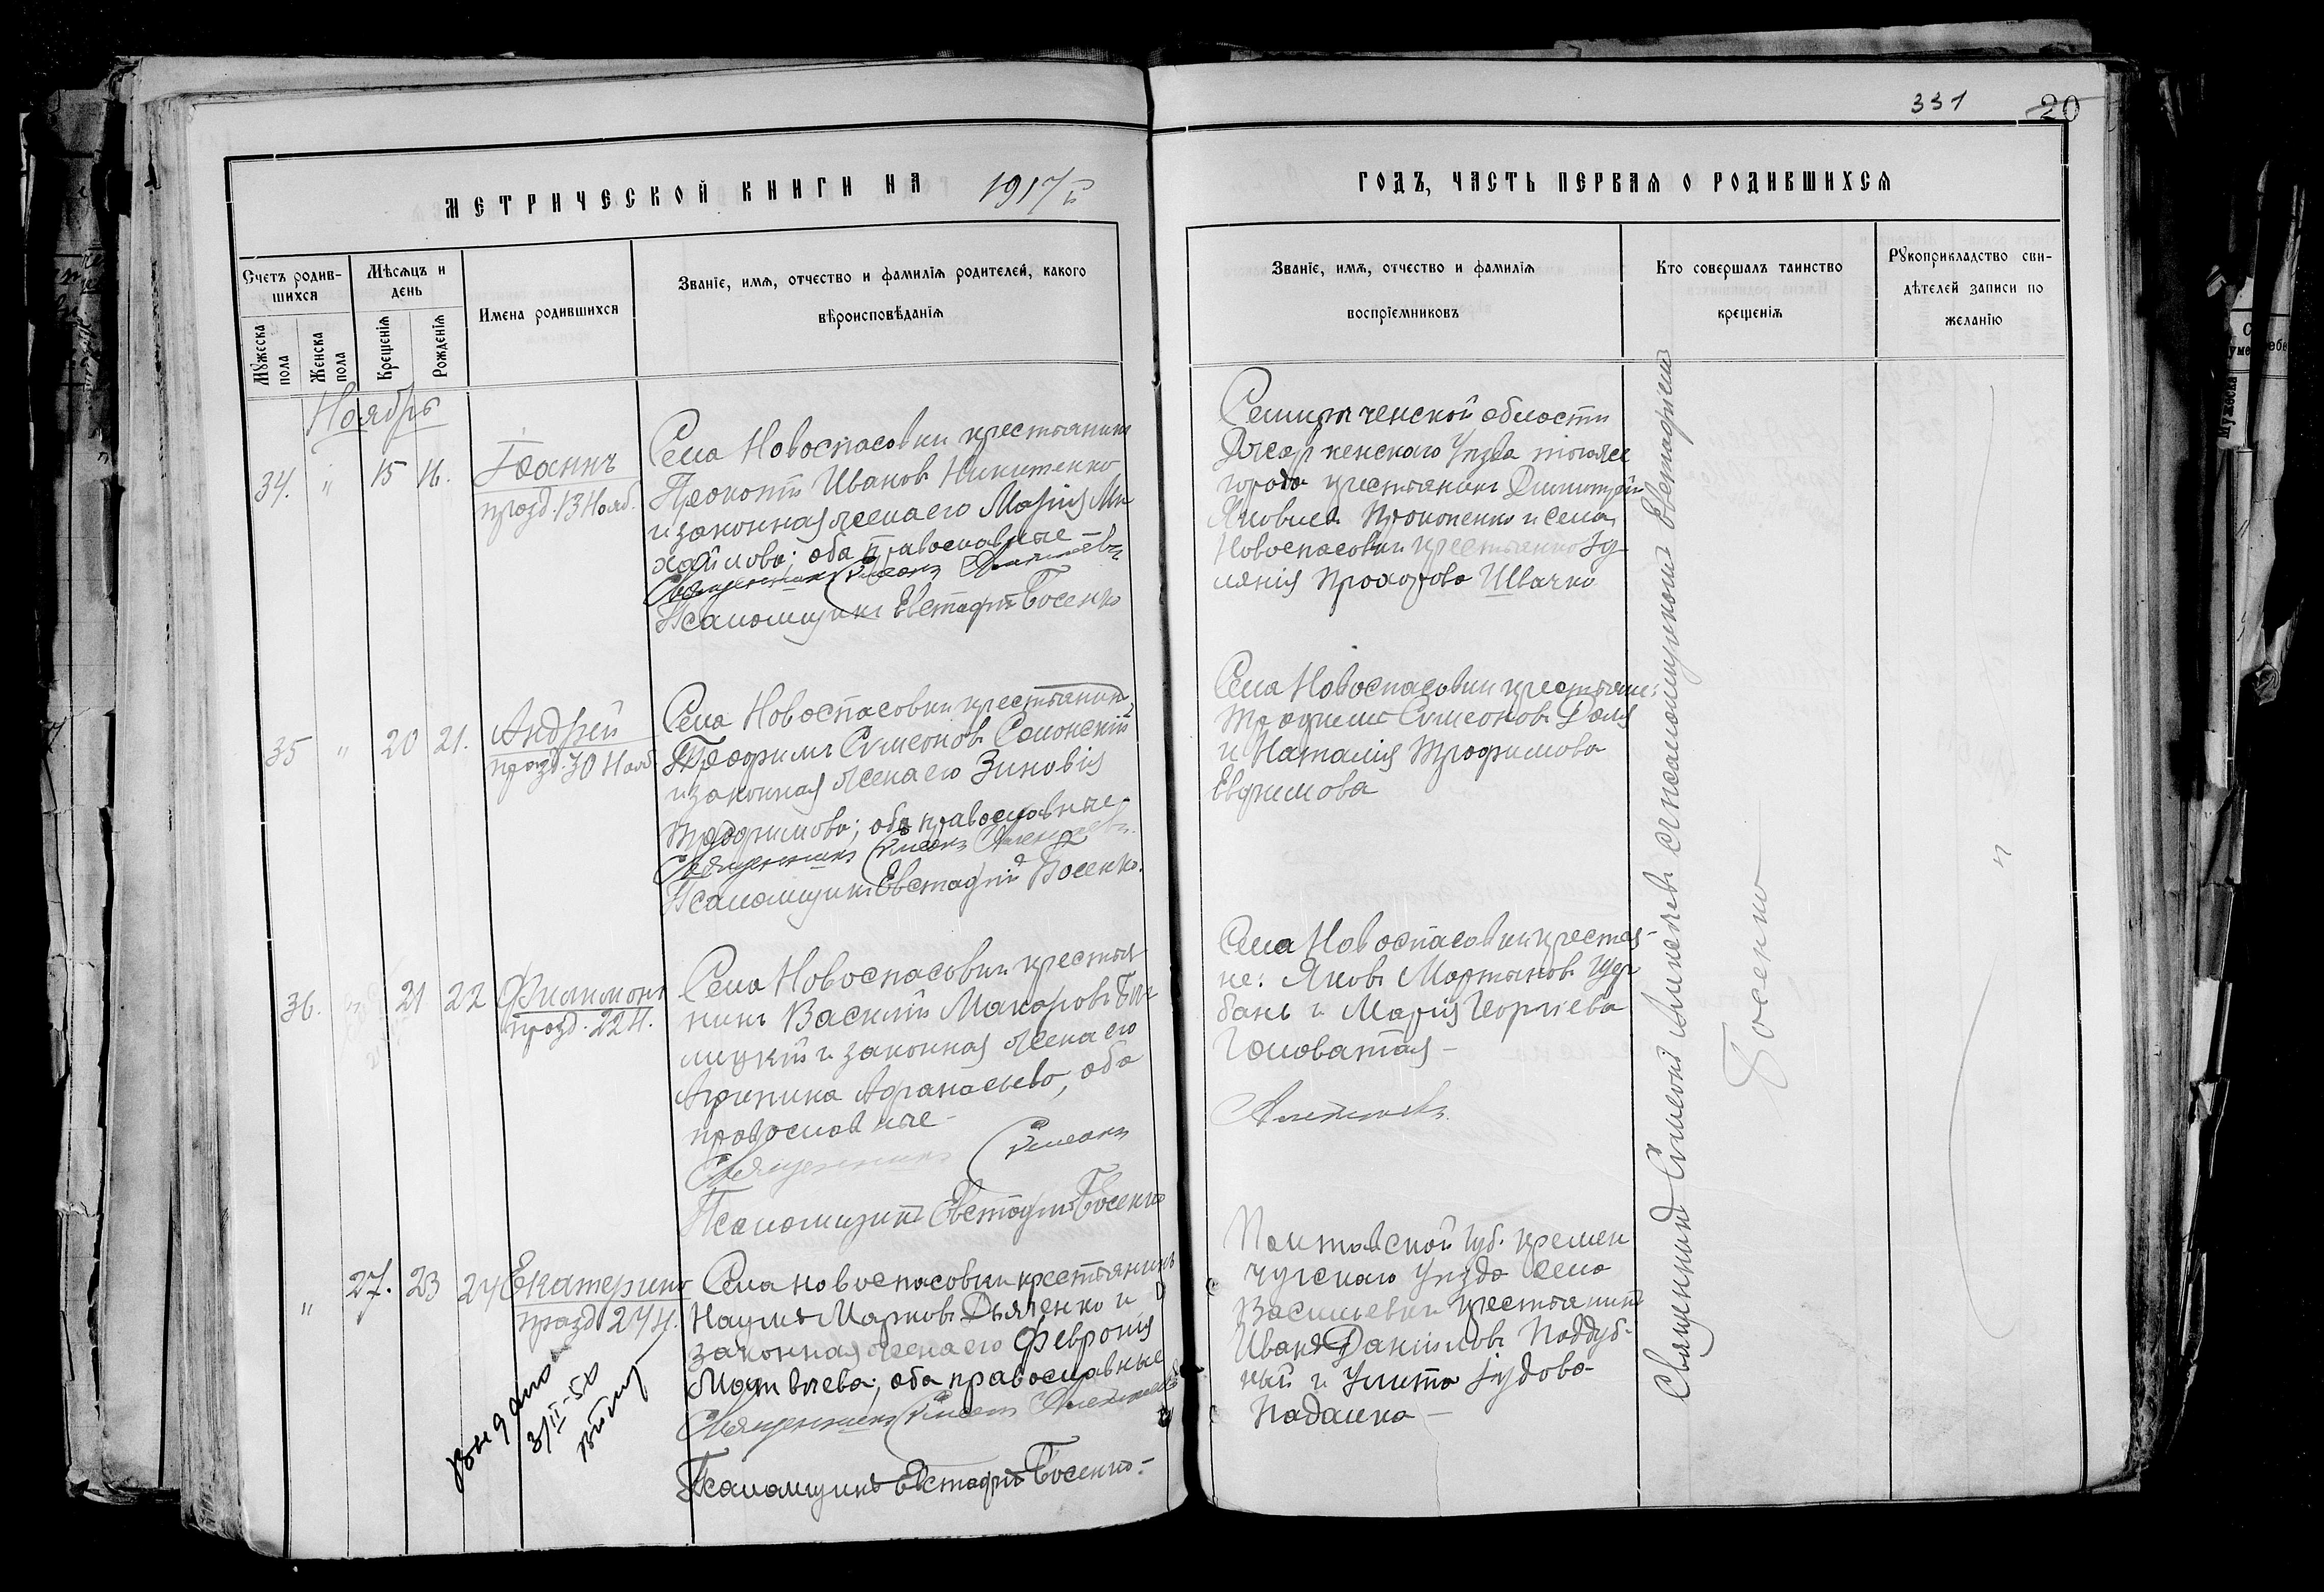 331
20
МЕТРИЧЕСКОЙ КНИГИ НА 1917 г.
ГОДЪ, ЧАСТЬ ПЕРВАЯ О РОДИВШИХСЯ
Счетъ родив-
шихся
Мужеска
пола
Женска
пола
Мѣсяцъ и
день
Крещенія
Рожденія
Имена родившихся
Званіе, имя, отчество и фамилія родителей, какого
вѣроисповѣданія
Званіе, имя, отчество и фамилія
воспріемниковъ
Кто совершалъ таинство
крещенія
Рукоприкладство сви-
дѣтелей записи по
желанію
Ноябрь
34. " 15 16.
Іоаннъ
празд. 13 Нояб.
Села Новоспасовки крестьянинъ
Прокопій Ивановъ Никитенко
и законная жена его Марія Ми
хайлова; оба православные –
Священникъ Симеонъ
Псаломщикъ Евстафій Босенко
Семирѣченской области
уѣзда
города крестьянинъ Димитрій
Яковлевъ Прокопенко и села
Новоспасовки крестьянка Іу-
лянія Прохорова Швачко
35 " 20 21.
Андрей
празд. 30 Нояб.
Села Новоспасовки крестьянинъ
Трофимъ Симеоновъ Солонскій
и законная жена его Зиновія
Трофимова; оба православные.
Священникъ Симеонъ
Псаломщикъ Евстафій Босенко.
Села Новоспасовки крестьяне:
Трофимъ Симеоновъ Доля
и Наталія Трофимова
Евфимова
36. " 21 22
Филимонъ
празд. 22 Н.
Села Новоспасовки крестья
нинъ Василій Макаровъ Би
лицкій и законная жена его
Агрипина Афанасьева, оба
православные –
Священникъ Симеонъ
Псаломщикъ Евстафій Босенко
Села Новоспасовки крестья-
не: Яковъ Мартыновъ Щер
бань и Марія Георгіева
Головатая –
" 27. 23 24
Екатерина
празд. 24 Н.
Села Новоспасовки крестьянинъ
Наумъ Марковъ Дьяченко и
законная жена его Февронія
Матвѣева; оба православные
Священникъ Симеонъ
Псаломщикъ Евстафій Босенко.–
Полтавской губ. Кремен
чугскаго уѣзда села
Васильевки крестьянинъ
Иванъ Даніиловъ Поддуб-
ный и Улита Іудова
Падалка –
Выдано
Священникъ Симеонъ съ псаломщикомъ Евстафіемъ
Босенко
"